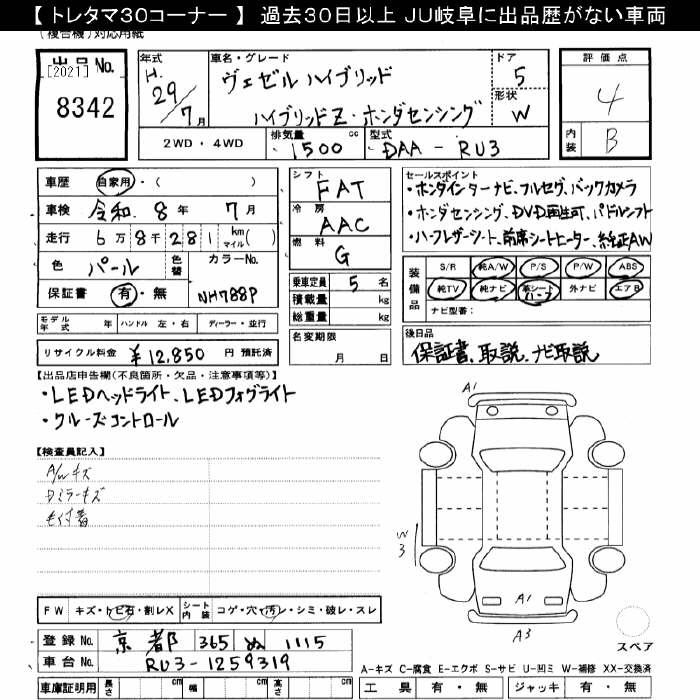 【 トレタマ30コーナー 】 過去30日以上 JU岐阜に出品歴がない車両
(複合機)対応用紙
出品No. [2021] 8342
年式 H. 29/7月
車名・グレード ヴェゼル ハイブリッド
ハイブリッドZ・ホンダセンシング
ドア 5
形状 W
評価点 4
内装 B
2WD・4WD
排気量 1500 cc
型式 DAA - RU3
車歴 自家用・( )
車検 令和 8年 7月
走行 6万8千281 km マイル( )
色 パール 色替 カラーNo.
保証書 有・無 NH788P
シフト FAT
冷房 AAC
燃料 G
乗車定員 5 名
積載量 kg
総重量 kg
セールスポイント
・ホンダインターナビ、フルセグ、バックカメラ
・ホンダセンシング、DVD再生可、パドルシフト
・ハーフレザーシート、前席シートヒーター、純正AW
装備品 S/R 純A/W P/S P/W ABS
純TV 純ナビ 革シート ハーフ 外ナビ エアB
ナビ型番:
モデル年式 年 ハンドル 左・右 ディーラー・並行
名変期限 月 日
リサイクル料金 ¥12,850 円 預託済
後日品 保証書、取説、ナビ取説
【出品店申告欄(不良箇所・欠品・注意事項等)】
・LEDヘッドライト、LEDフォグライト
・クルーズコントロール
【検査員記入】
A/Wキズ
Dミラーキズ
A1
W3
A1
A3
スペア
FW キズ・トビ石・割レX シート内装 コゲ・穴・汚レ・シミ・破レ・スレ
登録No. 京都 365 ぬ 1115
車台No. RU3-1259319
A-キズ C-腐食 E-エクボ S-サビ U-凹ミ W-補修 XX-交換済
車庫証明用 長さ cm 幅 cm 高さ cm
工具 有・無 ジャッキ 有・無